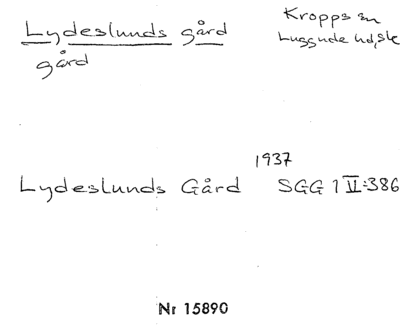 Lydeslunds gård
gård
Kropps sn
Luggude hd, Sk
1937
Lydeslunds Gård SGG 1 VI:386
Nr 15890